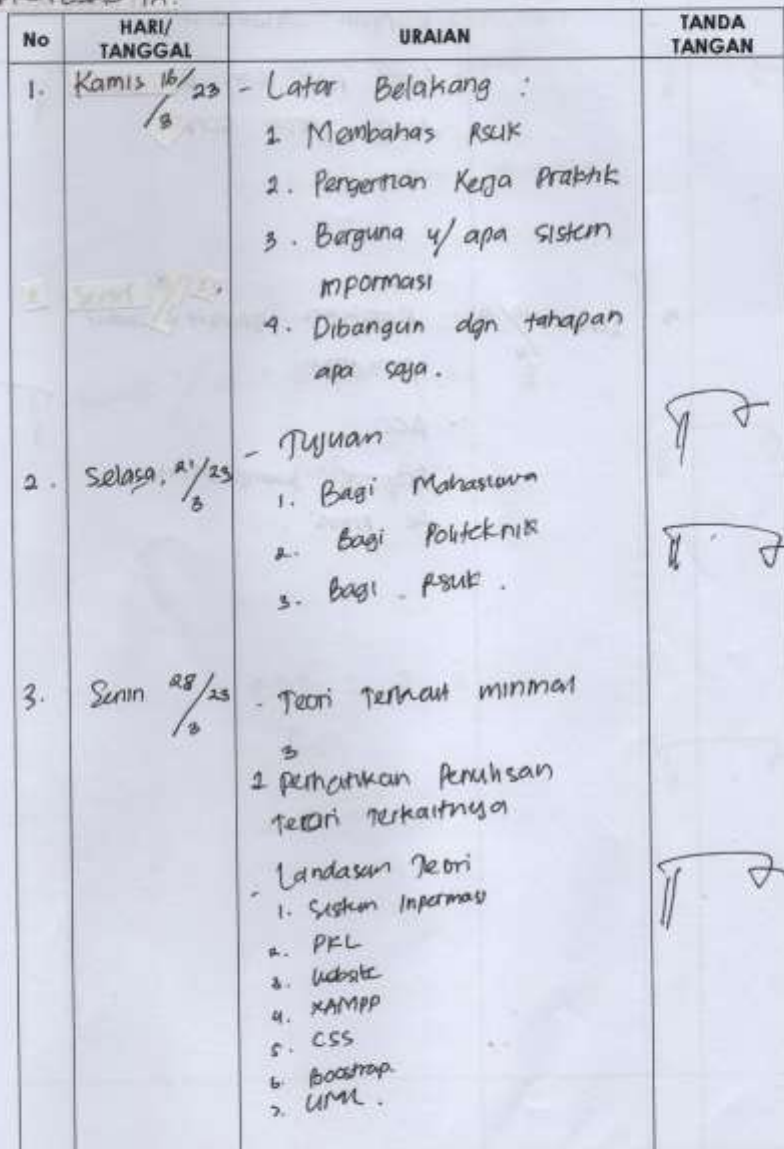 No HARI/ TANGGAL URAIAN TANDA TANGAN
1. Kamis 16/23 - Latar Belakang :
/3 1 Membahas RSUK
2. Pengertian Kerja Praktik
3. Berguna u/ apa sistem
inpormasi
4. Dibangun dgn tahapan
apa saja.
- Tujuan
2. Selasa, 21/23
/3 1. Bagi Mahasiswa
2. Bagi Politeknik
3. Bagi RSUK.
3. Senin 28/23 - Teori Terkait minimal
/3 3
1 Perhatikan Penulisan
Teori Terkaitnya
- Landasan Teori
1. Sistem Inpormasi
2. PKL
3. Website
4. XAMPP
5. CSS
6. Boostrap.
7. UML.